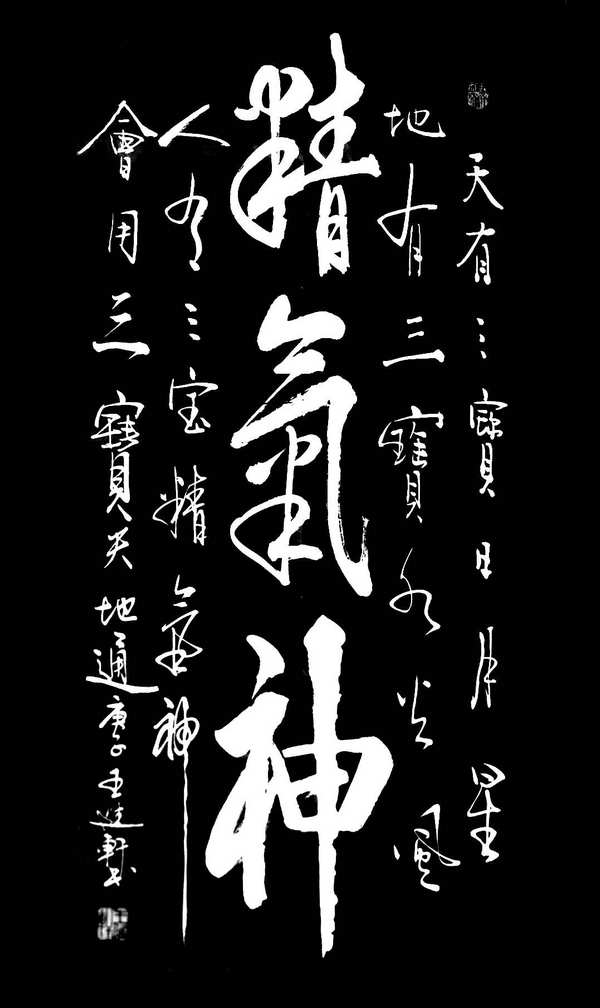 天有三寶日月星
地有三寶水火風
精氣神
人有三宝精氣神
會用三寶天地通庚子王進軒书